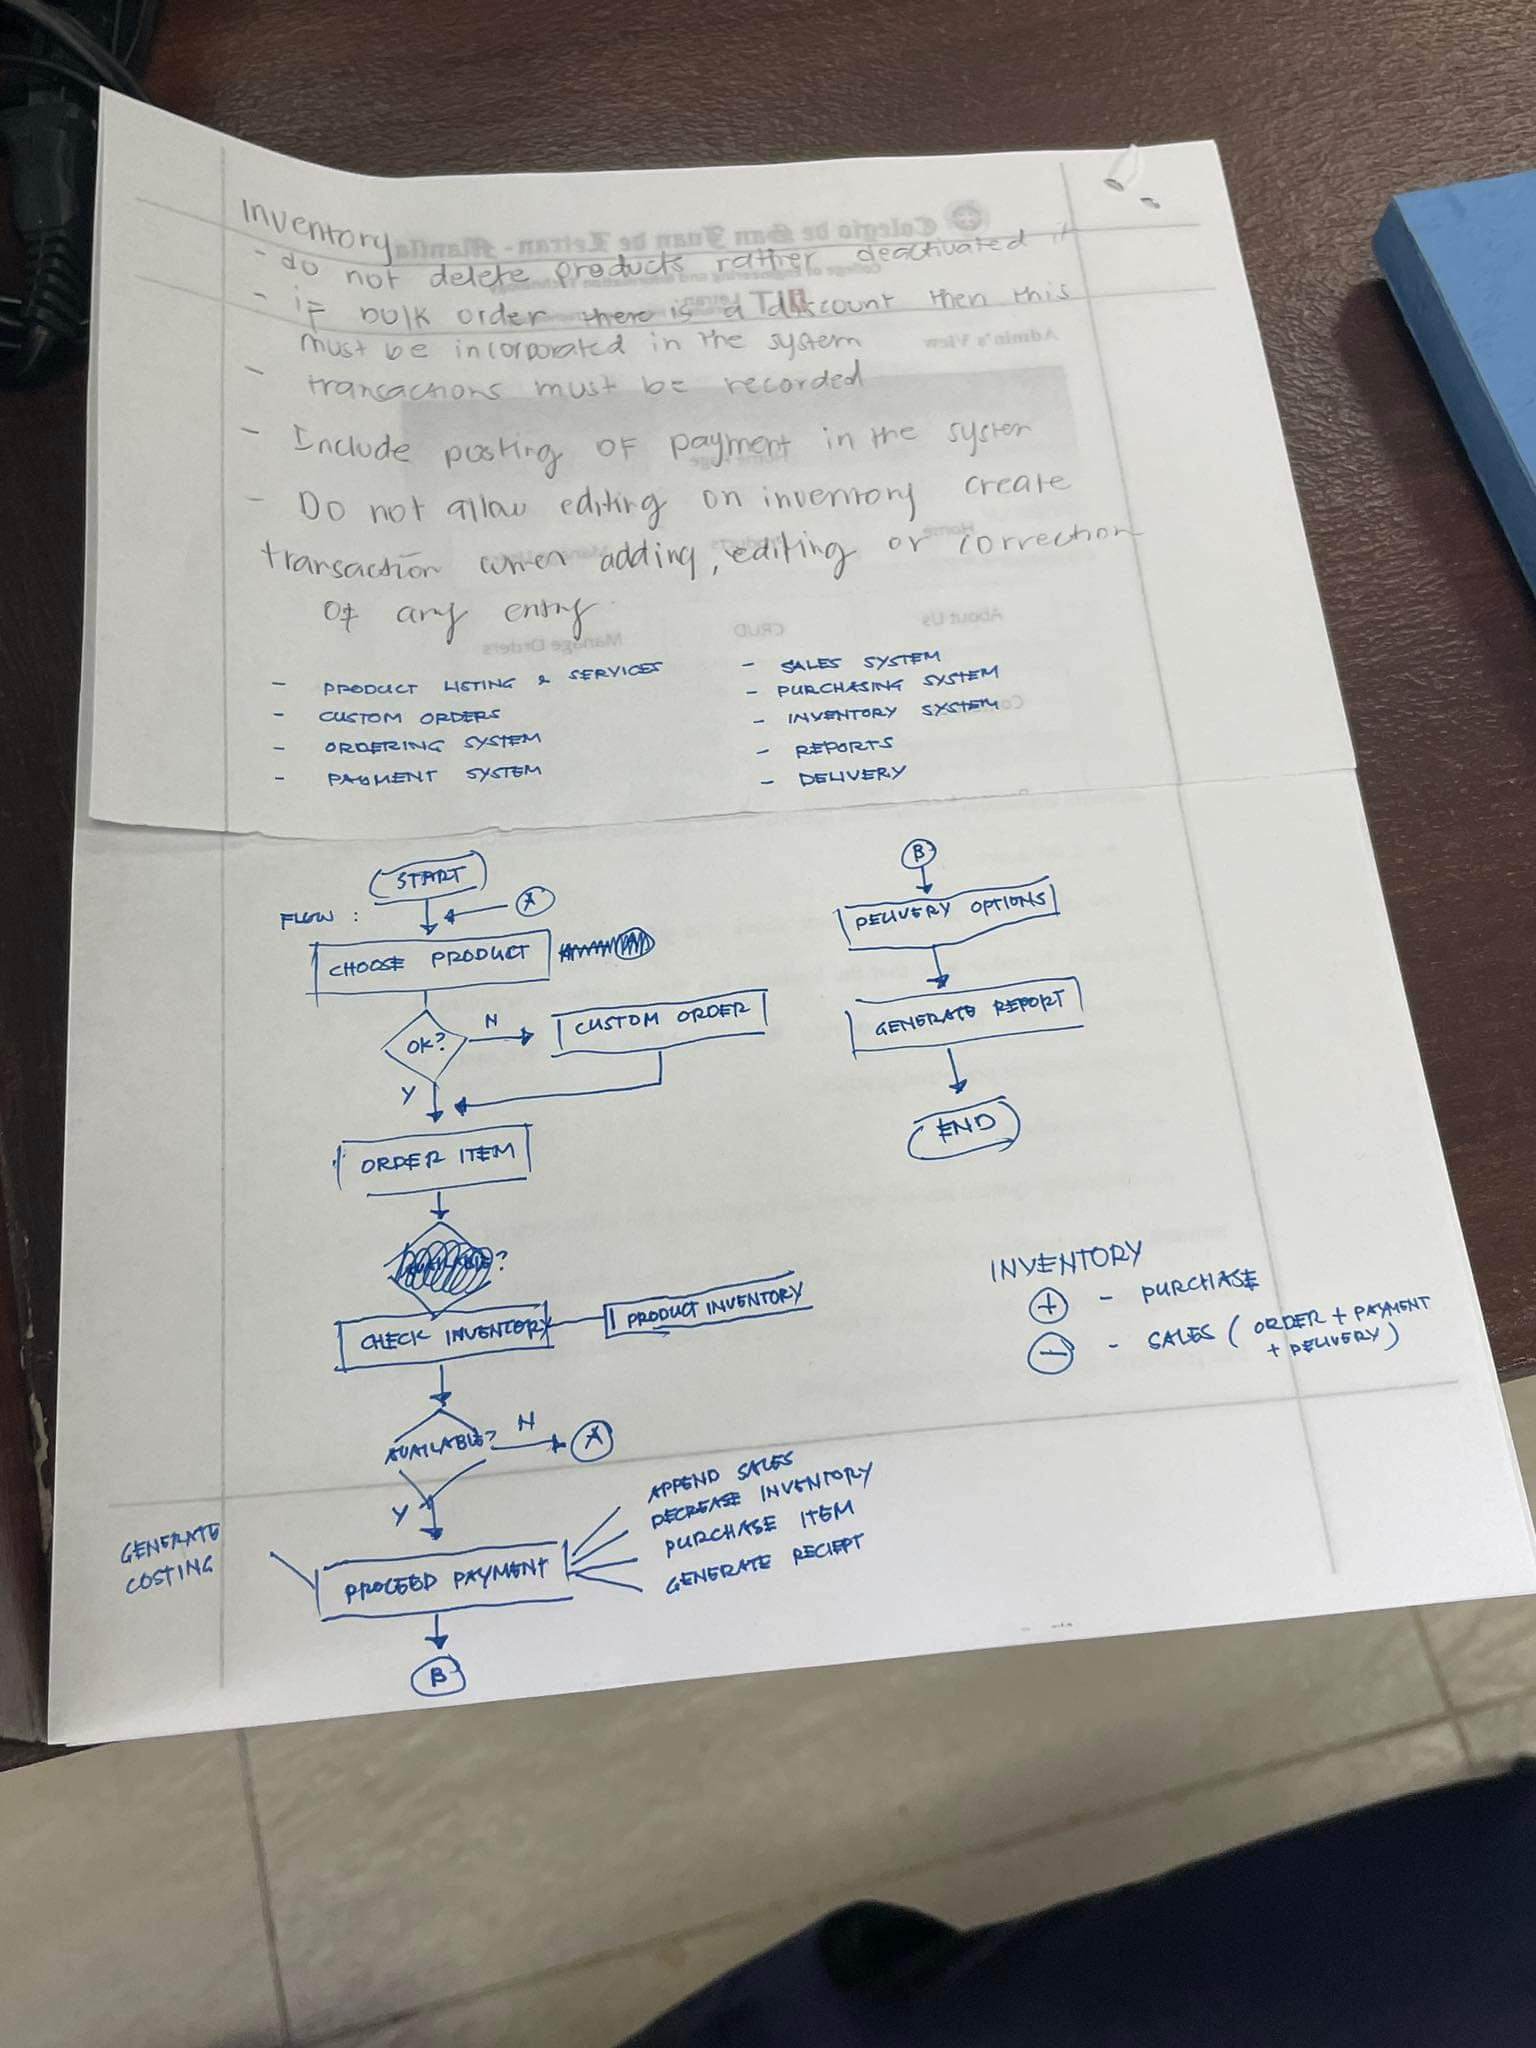 Inventory
- do not delete products rather deactivated it
- if bulk order there is a discount then this
must be incorporated in the system
- transactions must be recorded
- Include posting OF payment in the system
- Do not allow editing on inventory create
transaction when adding, editing or correction
of any entry
- PRODUCT LISTING & SERVICES
- CUSTOM ORDERS
- ORDERING SYSTEM
- PAYMENT SYSTEM
- SALES SYSTEM
- PURCHASING SYSTEM
- INVENTORY SYSTEM
- REPORTS
- DELIVERY
START
FLOW :
A
CHOOSE PRODUCT
OK?
N
CUSTOM ORDER
Y
ORDER ITEM
?
CHECK INVENTORY
PRODUCT INVENTORY
AVAILABLE?
N
A
Y
GENERATE
COSTING
PROCEED PAYMENT
APPEND SALES
DECREASE INVENTORY
PURCHASE ITEM
GENERATE RECIEPT
B
B
DELIVERY OPTIONS
GENERATE REPORT
END
INVENTORY
+ - PURCHASE
- - SALES (ORDER + PAYMENT
+ DELIVERY)
Colegio de San Juan de Letran - Manila
College of Engineering and Information Technology
Admin's View
Home Page
Home
Products
About Us
CRUD
Manage Orders